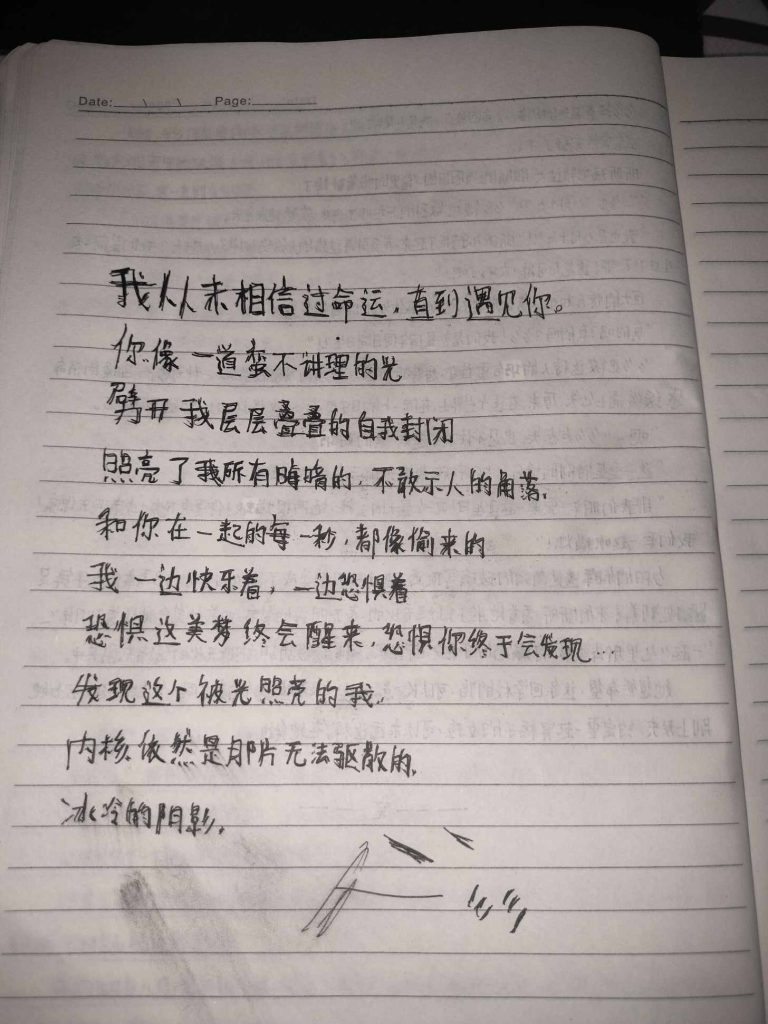 Date: \ \ Page:
我从未相信过命运，直到遇见你。
你像一道蛮不讲理的光
劈开我层层叠叠的自我封闭
照亮了我所有晦暗的，不敢示人的角落，
和你在一起的每一秒，都像偷来的
我一边快乐着，一边恐惧着
恐惧这美梦终会醒来，恐惧你终于会发现…
发现这个被光照亮的我，
内核依然是那片无法驱散的，
冰冷的阴影。